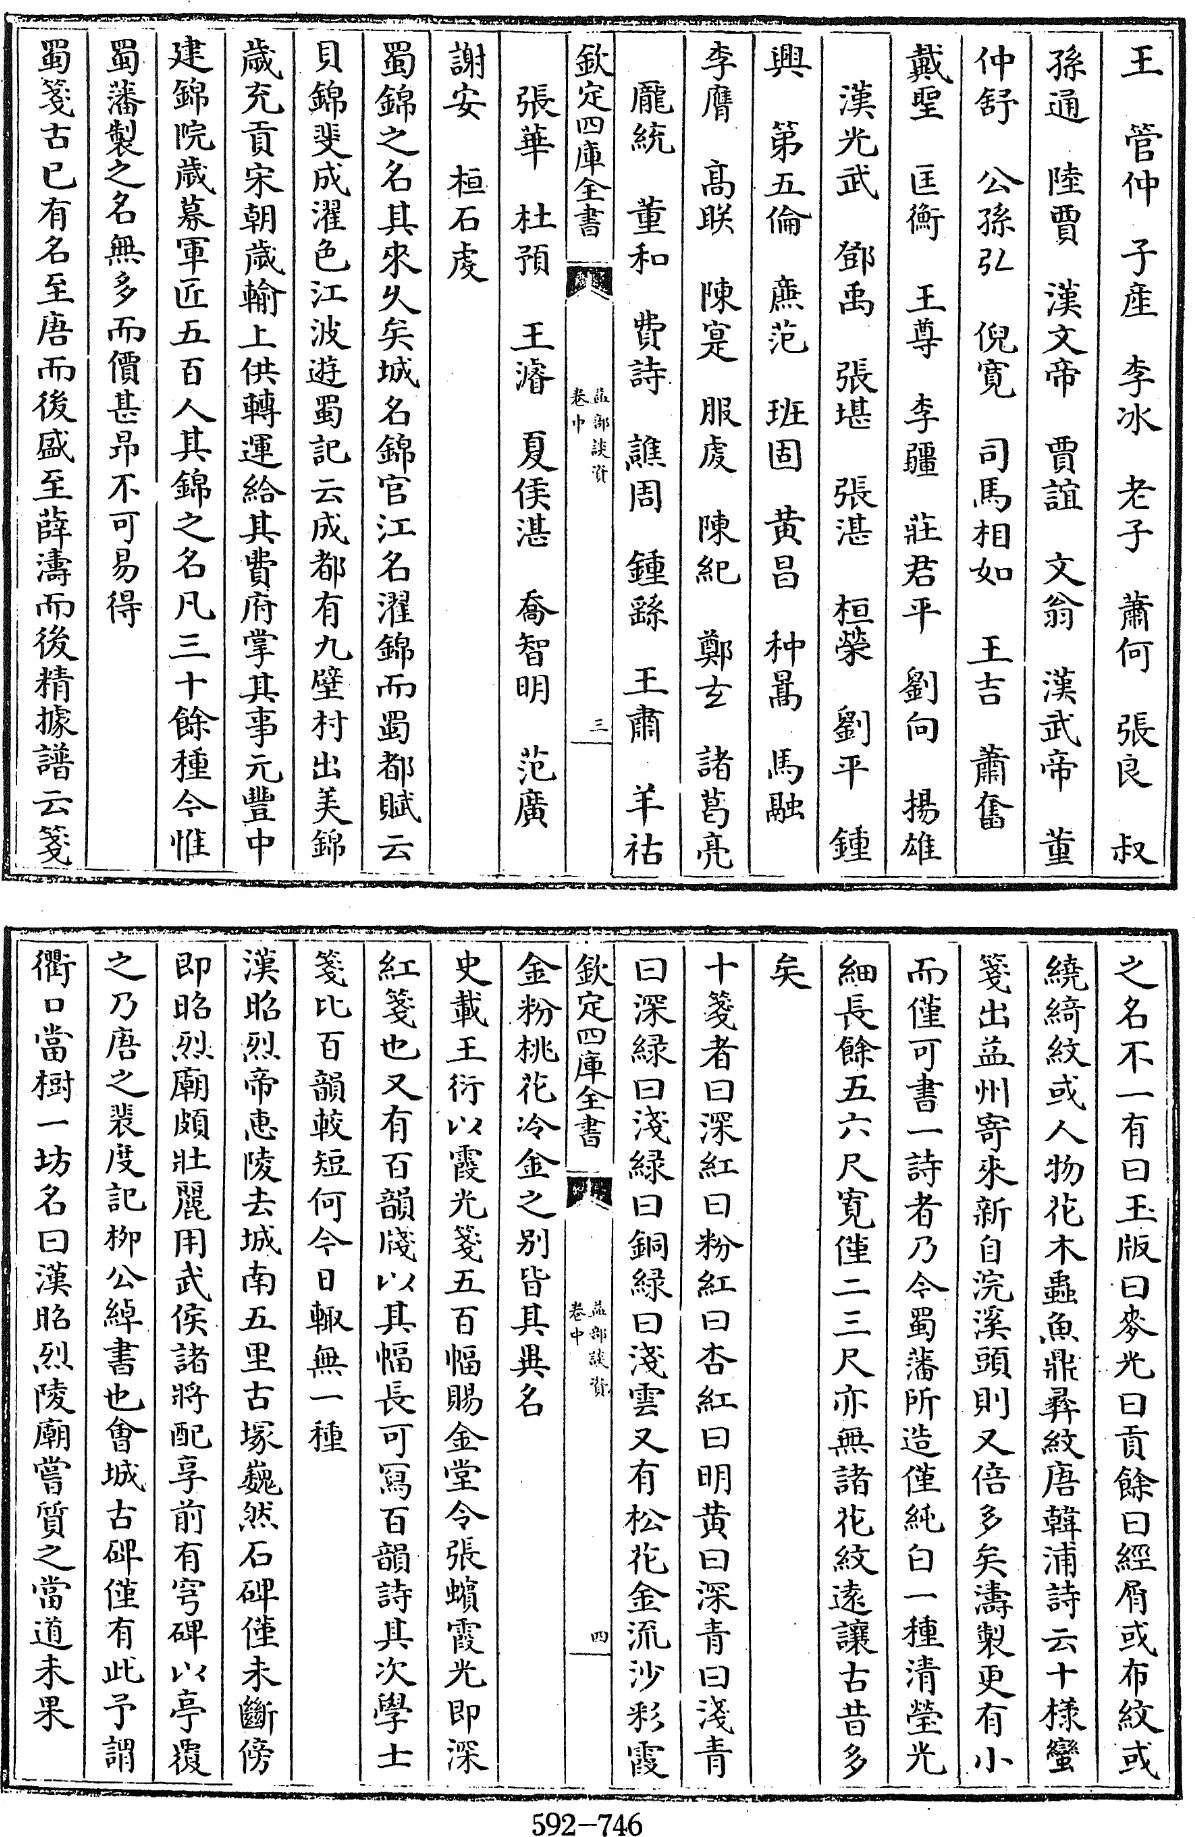 王　管仲　子產　李冰　老子　蕭何　張良　叔
孫通　陸賈　漢文帝　賈誼　文翁　漢武帝　董
仲舒　公孫弘　倪寬　司馬相如　王吉　蕭奮
戴聖　匡衡　王尊　李彊　莊君平　劉向　揚雄
漢光武　鄧禹　張堪　張湛　桓榮　劉平　鍾
興　第五倫　廉范　班固　黃昌　种暠　馬融
李膺　高朕　陳寔　服虔　陳紀　鄭玄　諸葛亮
龐統　董和　費詩　譙周　鍾繇　王肅　羊祜
欽定四庫全書　益部談資卷中　三
張華　杜預　王濬　夏侯湛　喬智明　范廣
謝安　桓石虔
蜀錦之名其來久矣城名錦官江名濯錦而蜀都賦云
貝錦斐成濯色江波遊蜀記云成都有九壁村出美錦
歲充貢宋朝歲輸上供轉運給其費府掌其事元豐中
建錦院歲募軍匠五百人其錦之名凡三十餘種今惟
蜀藩製之名無多而價甚昂不可易得
蜀箋古已有名至唐而後盛至薛濤而後精據譜云箋
之名不一有曰玉版曰麥光曰貢餘曰經屑或布紋或
繞綺紋或人物花木蟲魚鼎彝紋唐韓浦詩云十樣蠻
箋出益州寄來新自浣溪頭則又倍多矣濤製更有小
而僅可書一詩者乃今蜀藩所造僅純白一種清瑩光
細長餘五六尺寬僅二三尺亦無諸花紋遠讓古昔多
矣
十箋者曰深紅曰粉紅曰杏紅曰明黃曰深青曰淺青
曰深綠曰淺綠曰銅綠曰淺雲又有松花金流沙彩霞
欽定四庫全書　益部談資卷中　四
金粉桃花冷金之別皆其異名
史載王衍以霞光箋五百幅賜金堂令張蠙霞光即深
紅箋也又有百韻牋以其幅長可寫百韻詩其次學士
箋比百韻較短何今日輙無一種
漢昭烈帝惠陵去城南五里古塚巍然石碑僅未斷傍
即昭烈廟頗壯麗用武侯諸將配享前有穹碑以亭覆
之乃唐之裴度記栁公綽書也會城古碑僅有此予謂
衢口當樹一坊名曰漢昭烈陵廟嘗質之當道未果
592-746